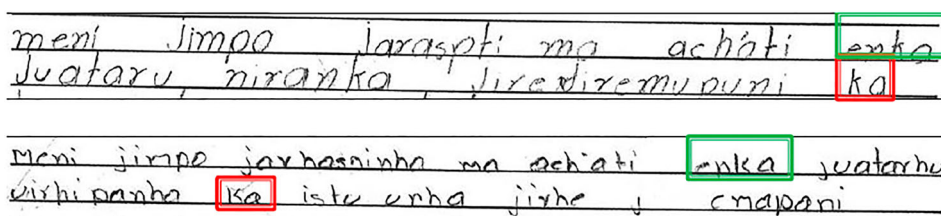 meni jimpo jaraspti ma achati enka
juataru niranka, jirediremupuni ka
Meni jimpo jarhasninha ma achati enka juatarhu
virhipanha ka istu unha jirhe